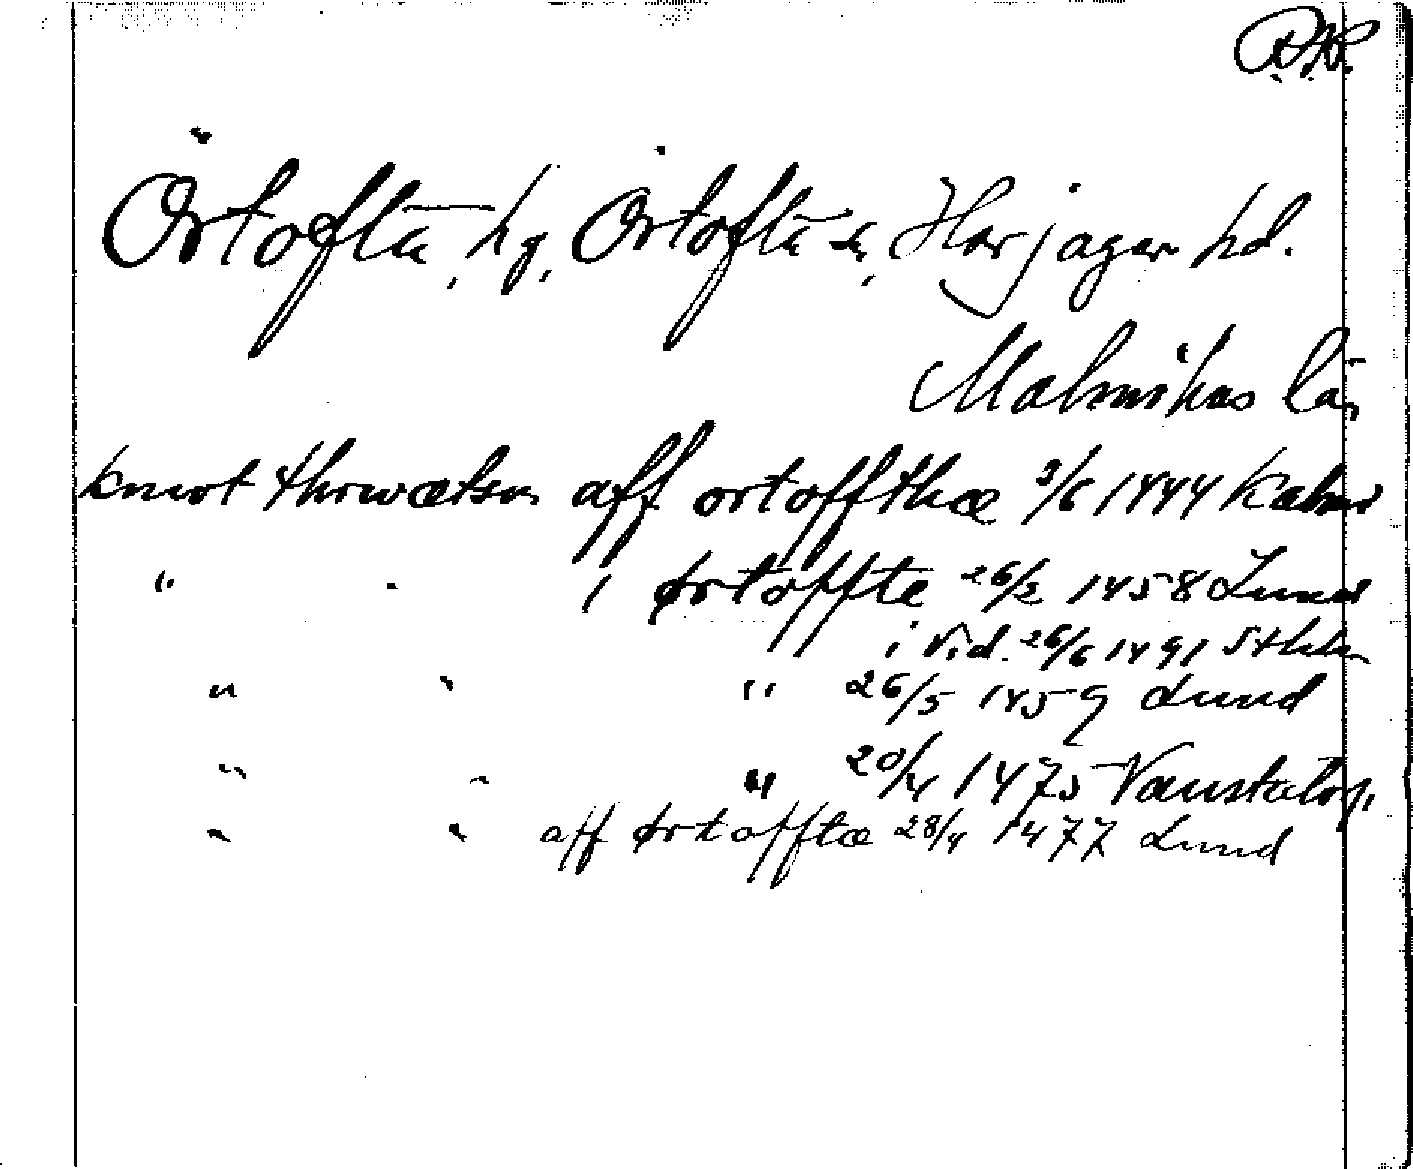 R.A.
Örtofta, hg, Örtofta sn, Harjager hd.
Malmöhus län
knwt thrwætsøn aff ortoffthæ 3/6 1444 Kalmar
" " i ørtoffte 26/2 1458 Lund
i vid. 26/6 1491 Sthlm
" " " 26/5 1459 Lund
" " " 20/4 1475
" " aff ørtofftæ 28/4 1477 Lund